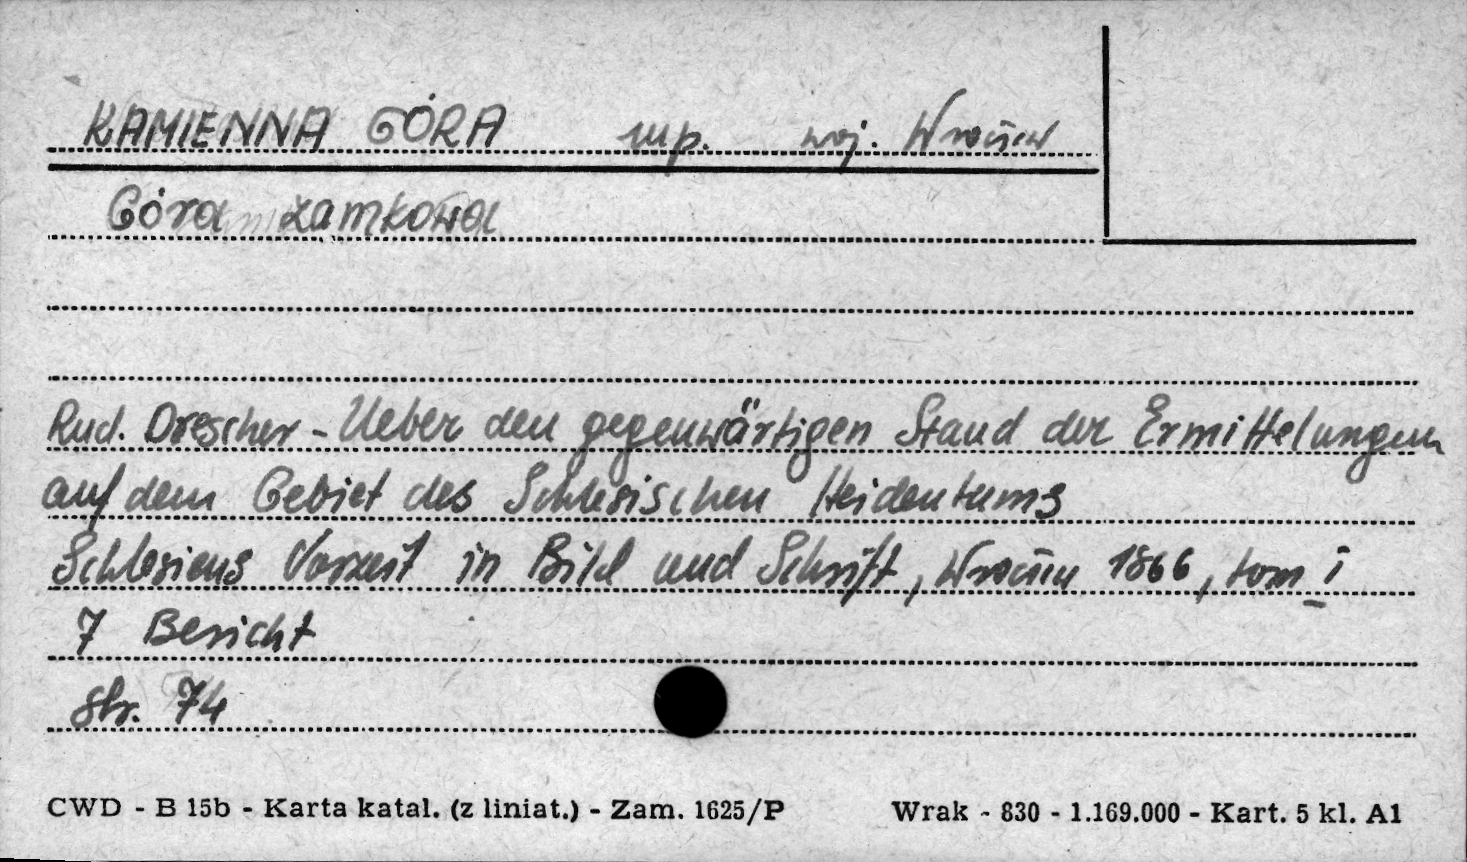 KAMIENNA GÓRA mp. woj. Wrocław
Góra zamkowa
Rud. Drescher - Ueber den gegenwärtigen Stand der Ermittelungen
auf dem Gebiet des Schlesischen Heidentums
Schlesiens Vorzeit in Bild und Schrift, Wrocław 1866, tom I
7 Bericht
str. 74
CWD - B 15b - Karta katal. (z liniat.) - Zam. 1625/P Wrak - 830 - 1.169.000 - Kart. 5 kl. A1